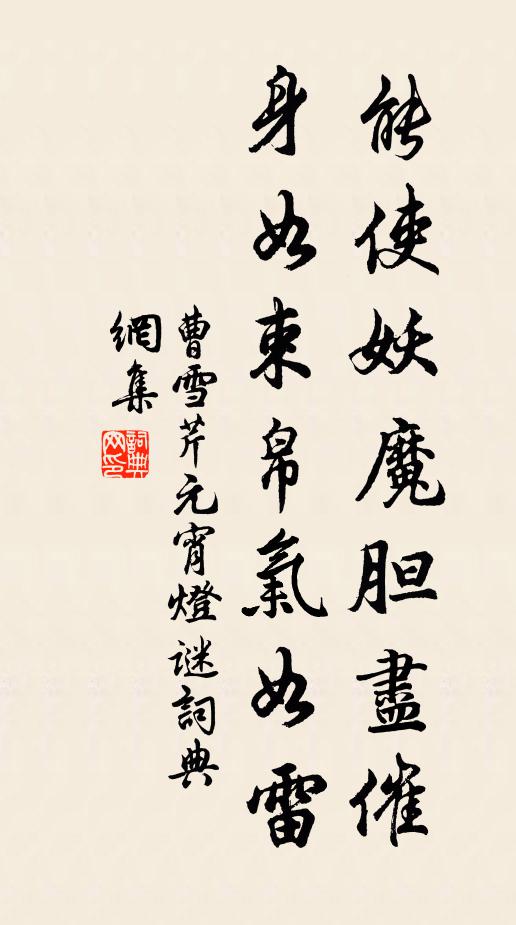 能使妖魔胆盡催
身如束帛氣如雷
曹雪芹元宵燈谜詞典
網集
詞典網印